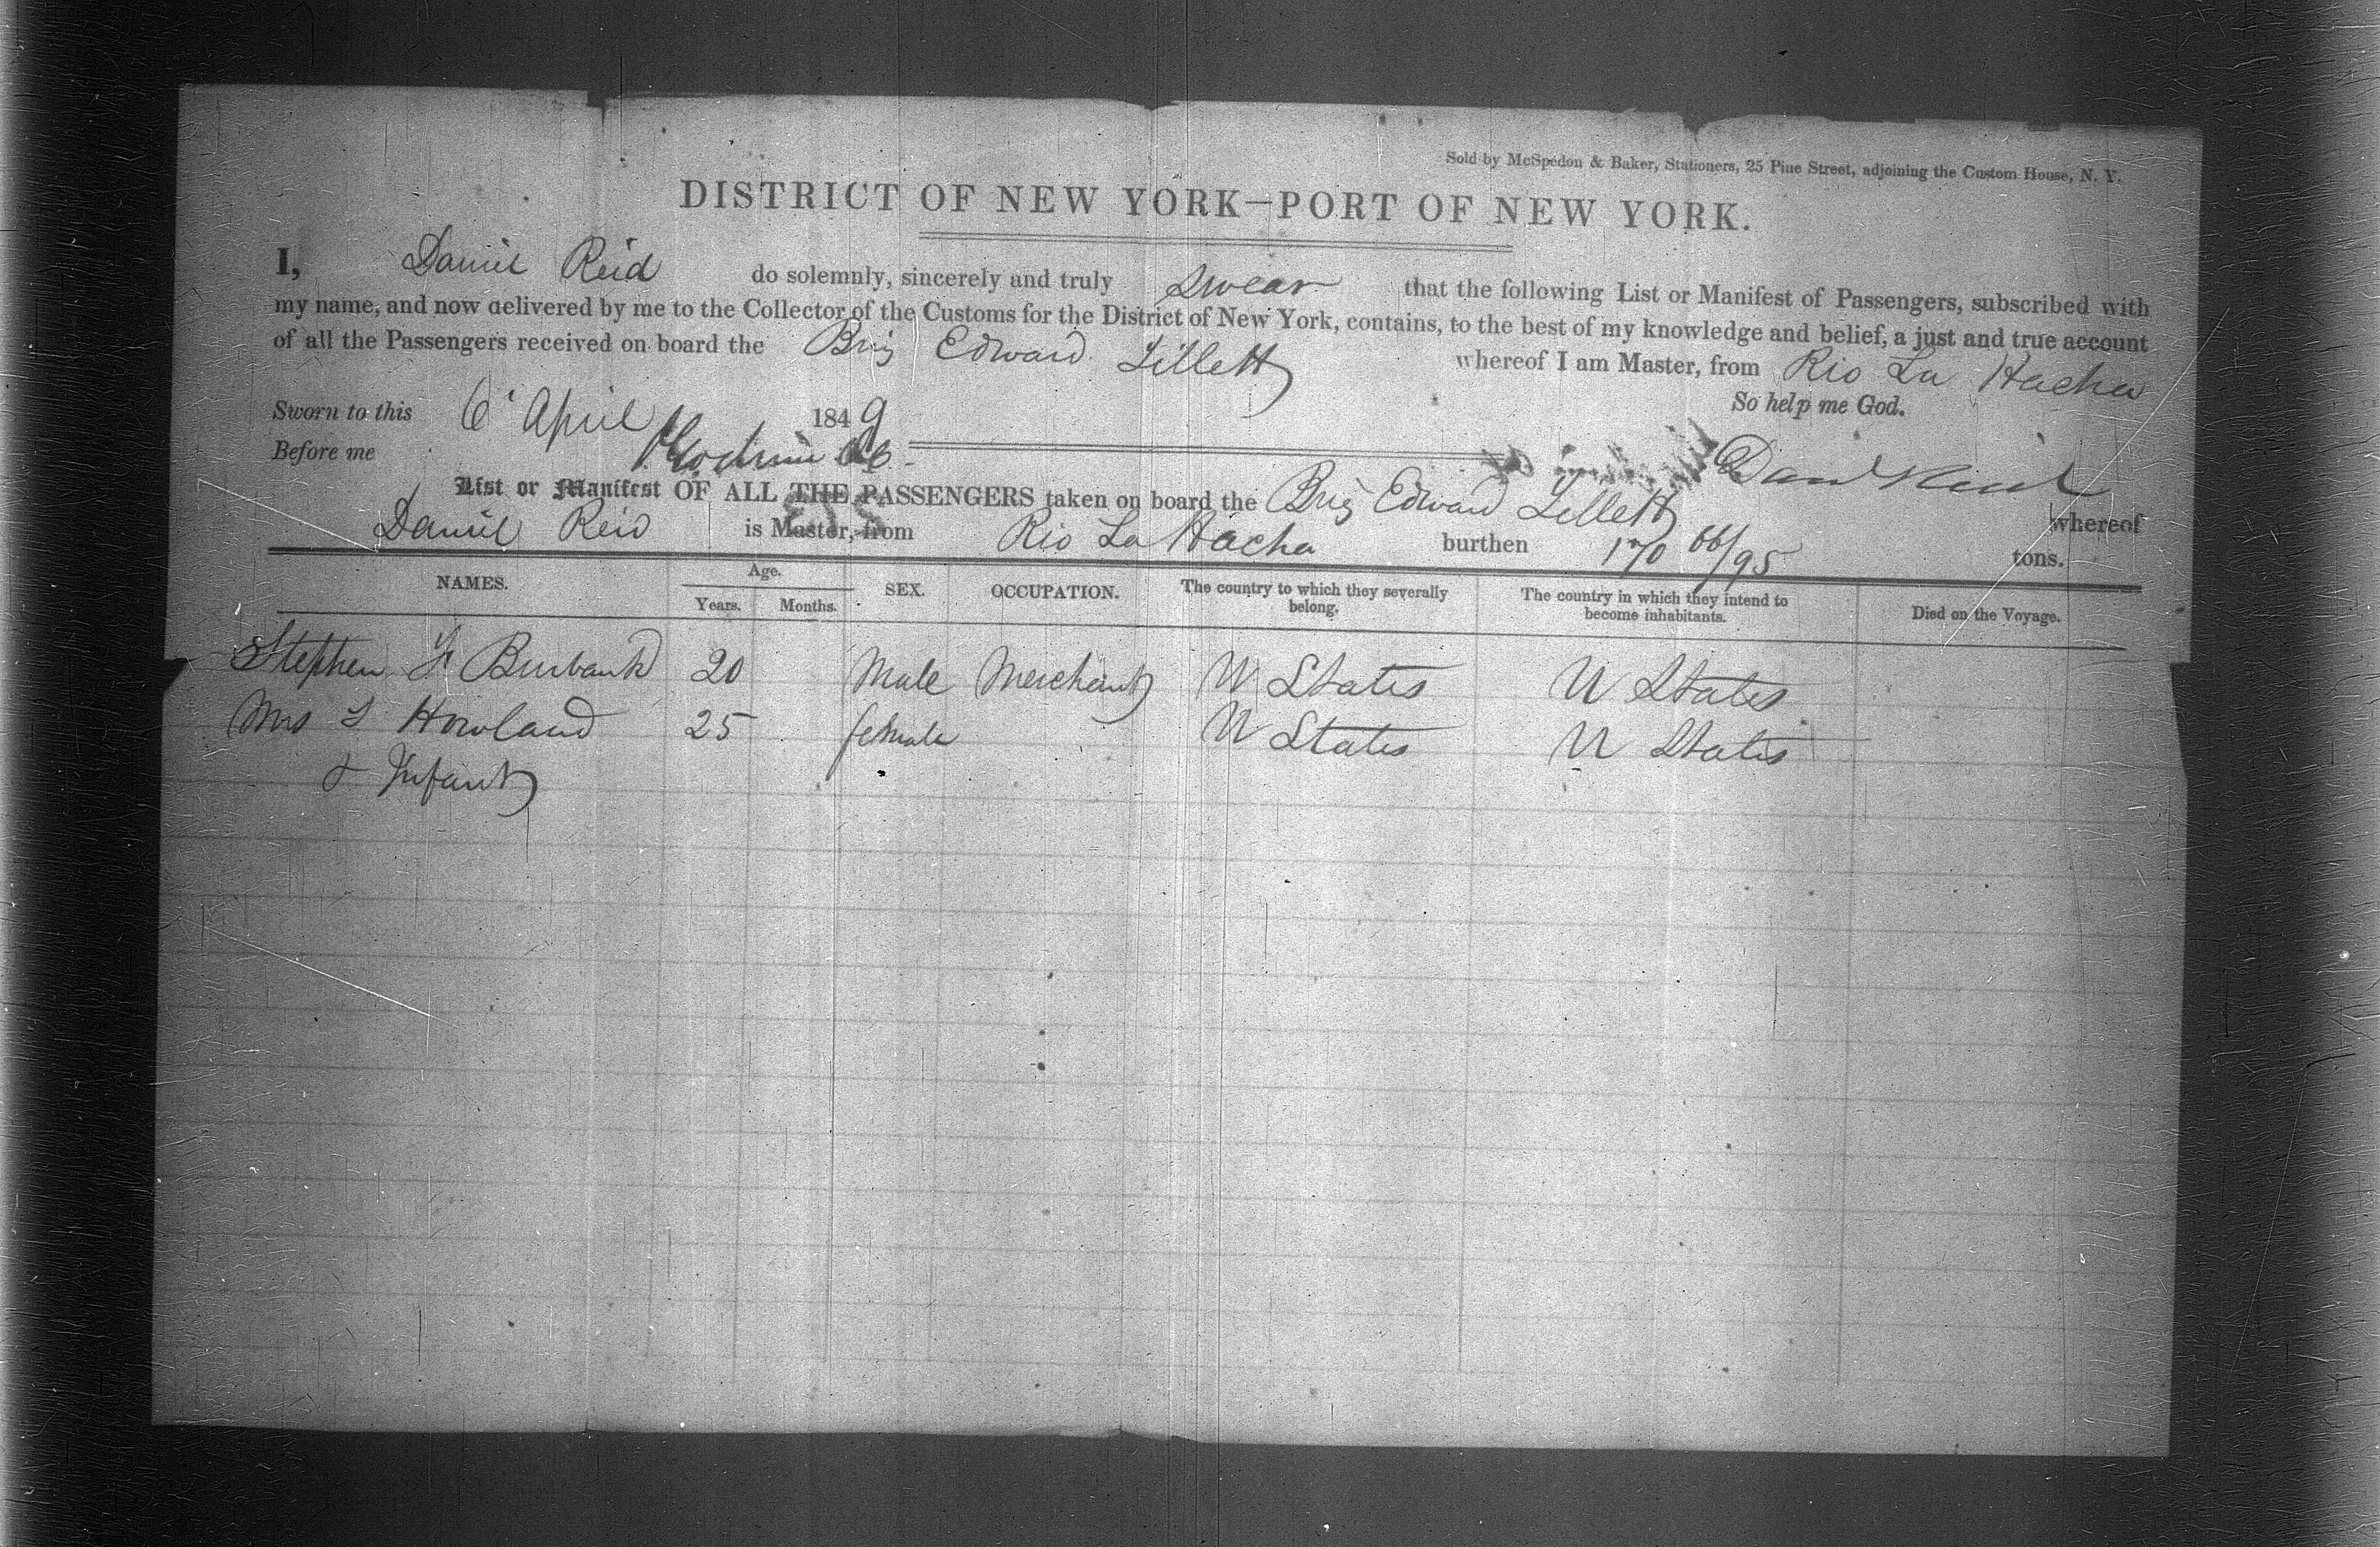 Sold by McSpedon & Baker, Stationers, 25 Pine Street, adjoining the Custom House, N. Y.
DISTRICT OF NEW YORK—PORT OF NEW YORK.
I, Daniel Reid do solemnly, sincerely and truly swear that the following List or Manifest of Passengers, subscribed with
my name, and now delivered by me to the Collector of the Customs for the District of New York, contains, to the best of my knowledge and belief, a just and true account
of all the Passengers received on board the Brig Edward Tillett whereof I am Master, from Rio La Hacha
Sworn to this 6 April 1849 So help me God.
Before me
List or Manifest OF ALL THE PASSENGERS taken on board the Brig Edward Tillett whereof
Daniel Reid is Master, from Rio La Hacha burthen 170 66/95 tons.
NAMES. Age. Years. Months. SEX. OCCUPATION. The country to which they severally belong. The country in which they intend to become inhabitants. Died on the Voyage.
Stephen Burbank 20 Male Merchant U States U States
Mrs Howland 25 female U States U States
& Infant